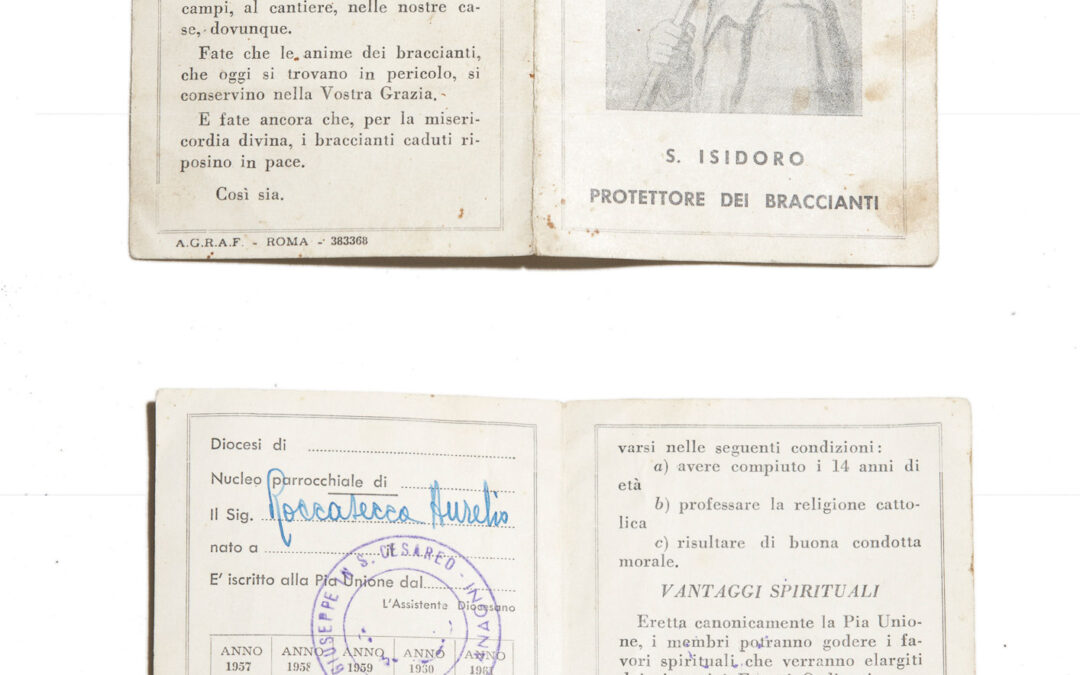 campi, al cantiere, nelle nostre ca-
se, dovunque.
Fate che le anime dei braccianti,
che oggi si trovano in pericolo, si
conservino nella Vostra Grazia.
E fate ancora che, per la miseri-
cordia divina, i braccianti caduti ri-
posino in pace.
Così sia.
A.G.R.A.F. - ROMA - 383368
S. ISIDORO
PROTETTORE DEI BRACCIANTI
Diocesi di
Nucleo parrocchiale di
Il Sig. Roccasecca Aurelio
nato a
E' iscritto alla Pia Unione dal
L'Assistente Diocesano
GIUSEPPE IN S. CESAREO - INAGNANA
ANNO ANNO ANNO ANNO ANNO
1957 1958 1959 1960 1961
varsi nelle seguenti condizioni:
a) avere compiuto i 14 anni di
età
b) professare la religione catto-
lica
c) risultare di buona condotta
morale.
VANTAGGI SPIRITUALI
Eretta canonicamente la Pia Unio-
ne, i membri potranno godere i fa-
vori spirituali che verranno elargiti